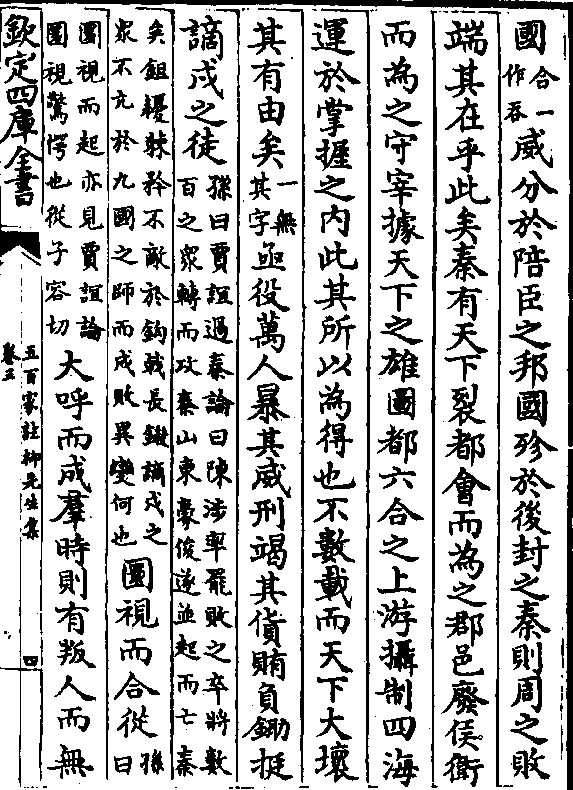 國一作合吞威分於陪臣之邦國殄於後封之秦則周之敗
端其在乎此矣秦有天下裂都會而為之郡邑廢侯衛
而為之守宰據天下之雄圖都六合之上游攝制四海
運於掌握之內此其所以為得也不數載而天下大壞
其有由矣一無其字亟役萬人暴其威刑竭其貨賄負鋤挺
謫戍之徒孫曰賈誼過秦論曰陳涉率罷敗之卒將數百之衆轉而攻秦山東豪俊遂並起而亡秦
矣鉏櫌棘矜不敵於鈎戟長鎩謫戍之衆不亢於九國之師而成敗異變何也圜視而合從孫曰
圜視而起亦見賈誼論圜視驚愕也從子容切大呼而成羣時則有叛人而無
欽定四庫全書
五百家註柳先生集
卷三
四